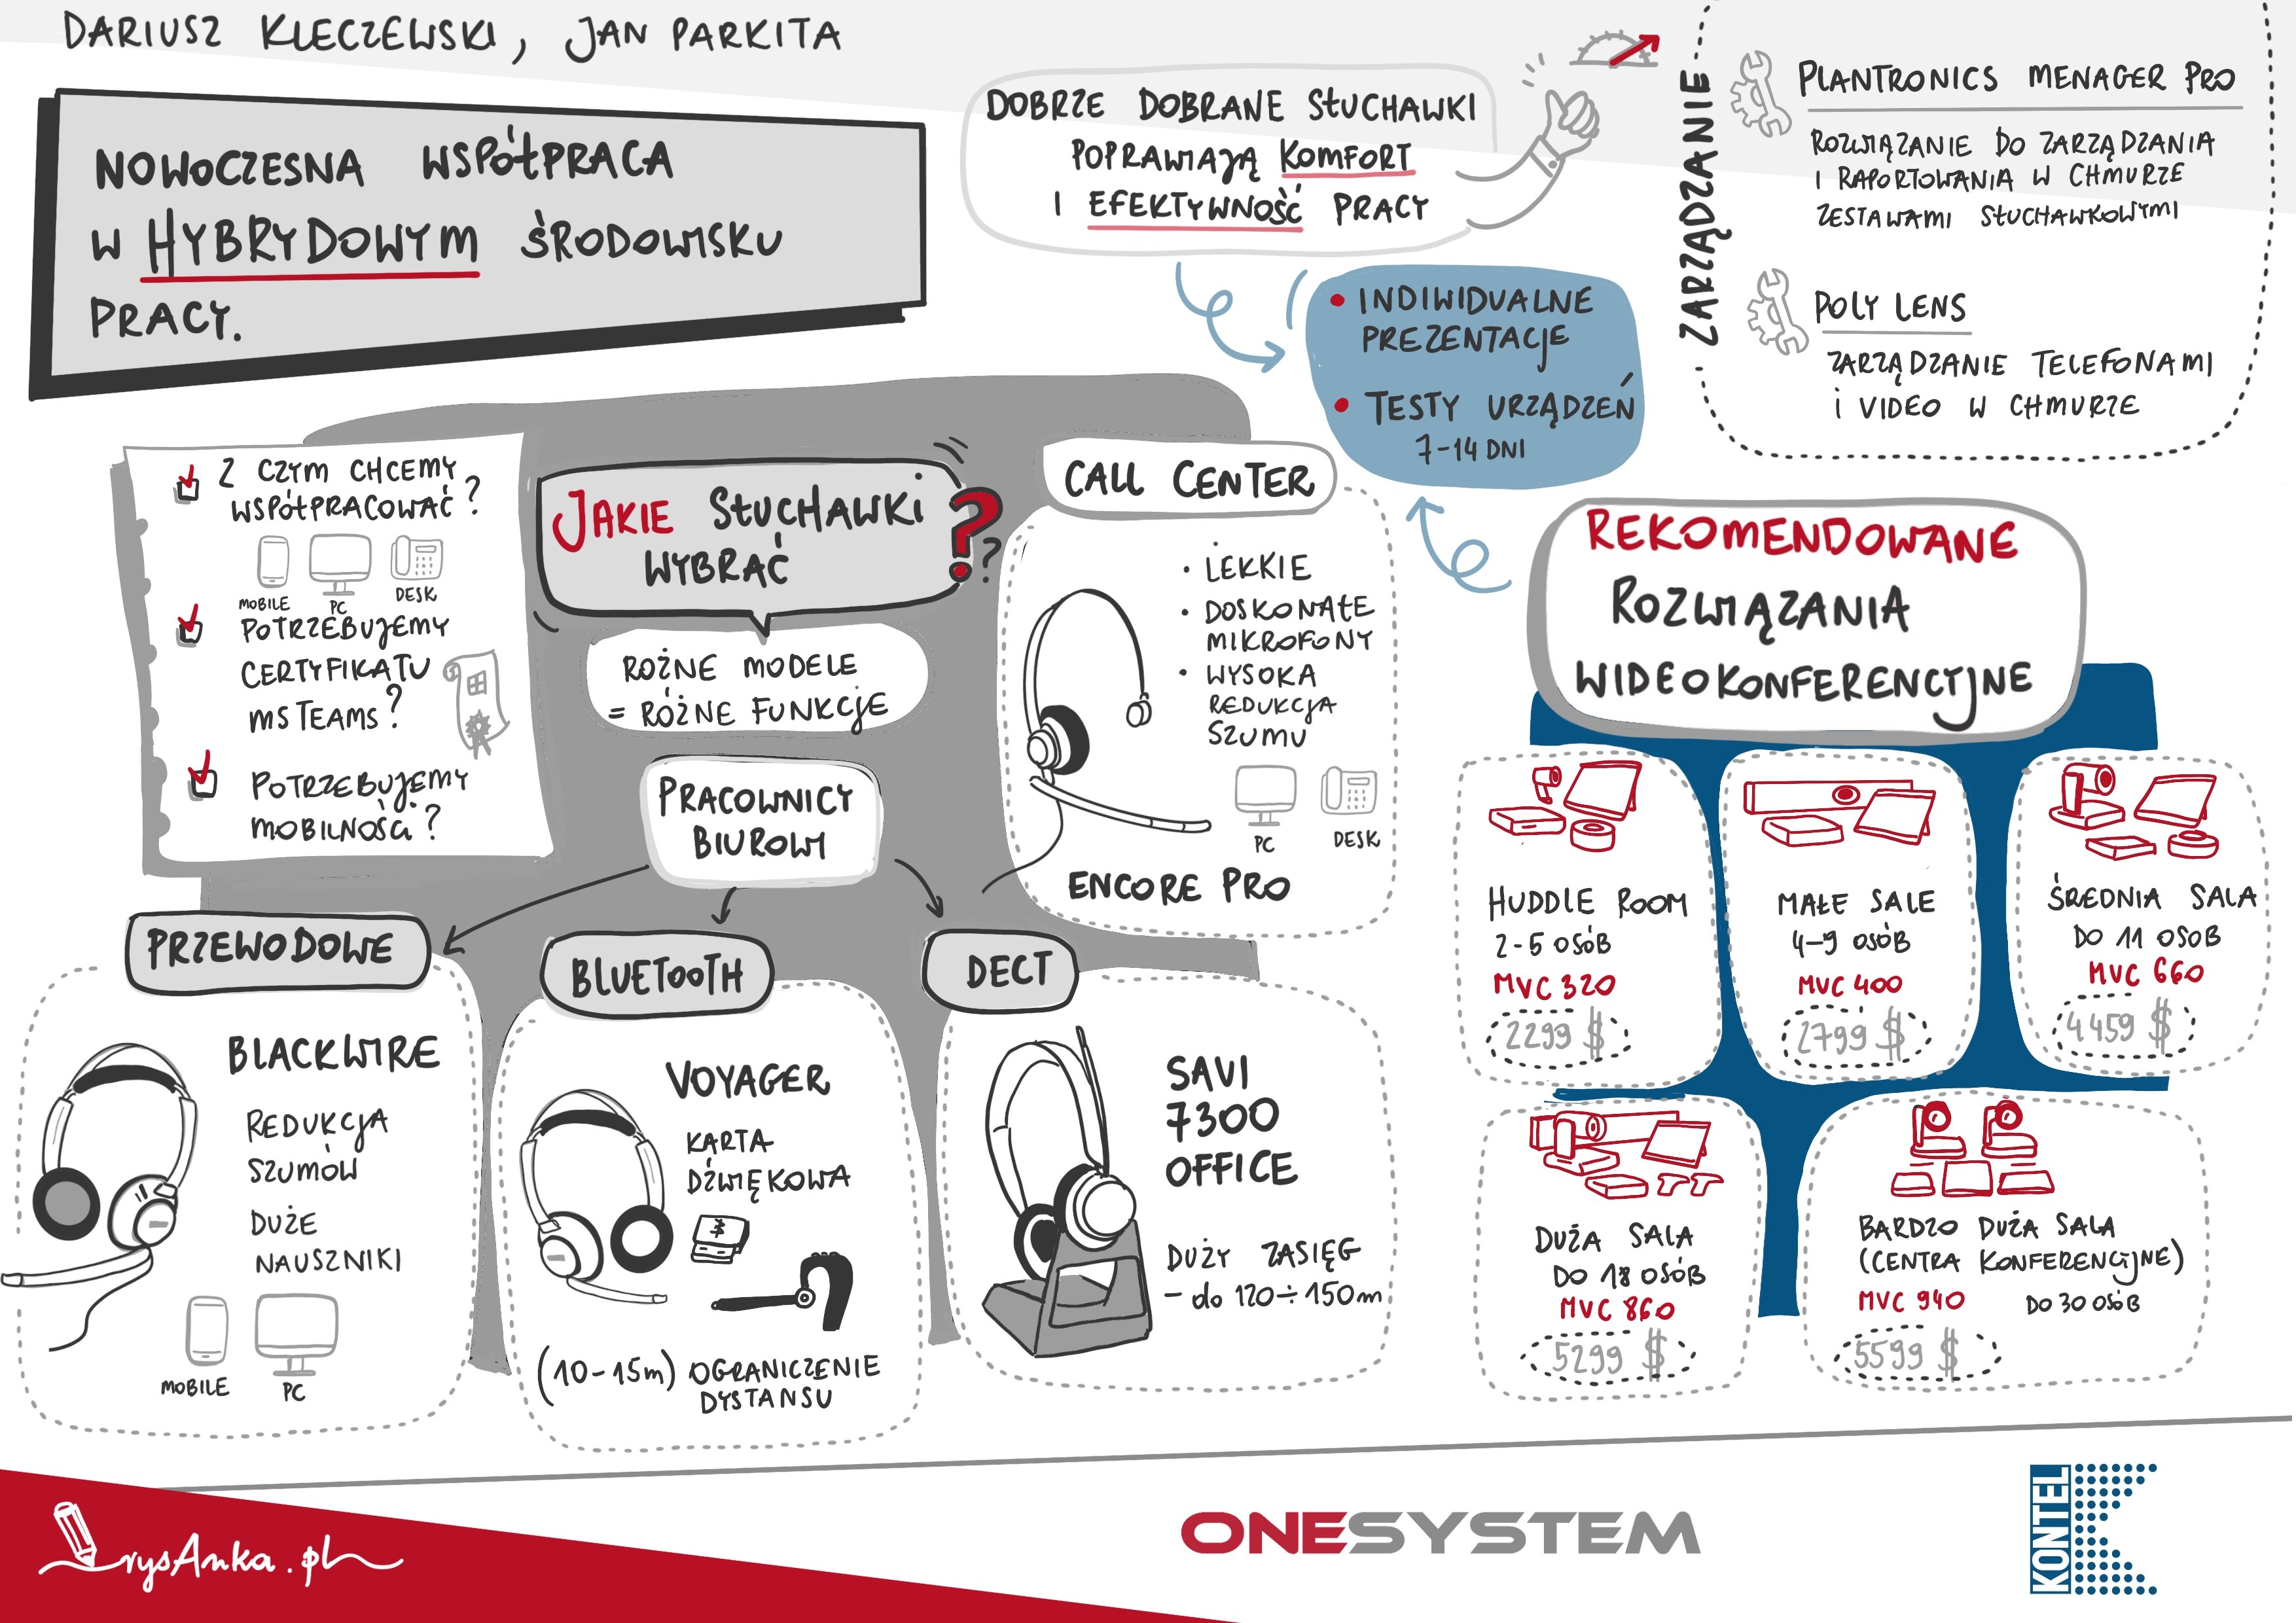 DARIUSZ KLECZEWSKI, JAN PARKITA
NOWOCZESNA WSPÓŁPRACA
W HYBRYDOWYM ŚRODOWISKU
PRACY.
DOBRZE DOBRANE SŁUCHAWKI
POPRAWIAJĄ KOMFORT
I EFEKTYWNOŚĆ PRACY
• INDIWIDUALNE
PREZENTACJE
• TESTY URZĄDZEŃ
7-14 DNI
ZARZĄDZANIE
PLANTRONICS MENAGER PRO
ROZWIĄZANIE DO ZARZĄDZANIA
I RAPORTOWANIA W CHMURZE
ZESTAWAMI SŁUCHAWKOWYMI
POLY LENS
ZARZĄDZANIE TELEFONAMI
i VIDEO W CHMURZE
Z CZYM CHCEMY
WSPÓŁPRACOWAĆ?
MOBILE PC DESK
POTRZEBUJEMY
CERTYFIKATU
MS TEAMS?
POTRZEBUJEMY
MOBILNOŚCi?
JAKIE SŁUCHAWKi
WYBRAĆ
? ?
ROŻNE MODELE
= RÓŻNE FUNKCjE
PRACOWNICY
BIUROWI
CALL CENTER
• LEKKIE
• DOSKONAŁE
MIKROFONY
• WYSOKA
REDUKCJA
SZUMU
PC DESK
ENCORE PRO
PRZEWODOWE
BLACKWIRE
REDUKCJA
SZUMÓW
DUŻE
NAUSZNIKI
MOBILE PC
BLUETOOTH
VOYAGER
KARTA
DŹWIĘKOWA
$
(10-15m) OGRANICZENIE
DYSTANSU
DECT
SAVI
7300
OFFICE
DUŻY ZASIĘG
- do 120÷150m
REKOMENDOWANE
ROZWIĄZANIA
WIDEOKONFERENCYJNE
HUDDLE ROOM
2-5 OSÓB
MVC 320
2299 $
MAŁE SALE
4-9 OSÓB
MVC 400
2799 $
ŚREDNIA SALA
DO 11 OSOB
MVC 660
4459 $
DUŻA SALA
DO 18 OSÓB
MVC 860
5299 $
BARDZO DUŻA SALA
(CENTRA KONFERENCYJNE)
MVC 940 DO 30 OSÓB
5599 $
rysAnka.pl
ONESYSTEM
KONTEL